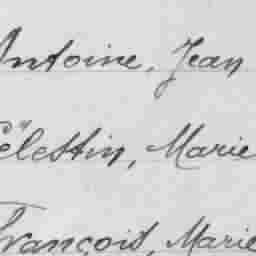 Antoine, Jean
Célestin, Marie
François, Marie